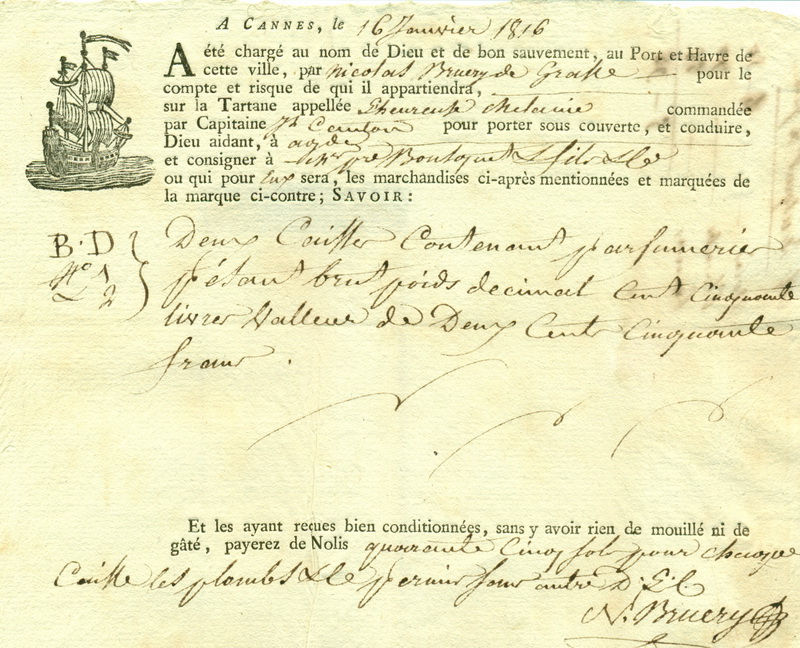 A CANNES, le 16 Janvier 1816
A été chargé au nom de Dieu et de bon sauvement, au Port et Havre de
cette ville, par Nicolas Bruery de Grasse pour le
compte et risque de qui il appartiendra,
sur la Tartane appellée L'heureuse Melanie commandée
par Capitaine Jh Canton pour porter sous couverte, et conduire,
Dieu aidant, à agde
et consigner à pre Bousquet & fils &
ou qui pour Eux sera, les marchandises ci-après mentionnées et marquées de
la marque ci-contre; SAVOIR:
B. D Deux Caisses Contenant parfumeries
No 1 pésant brut poids decimal Cent Cinquante
2 livres Valleur de Deux Cents Cinquante
francs.
Et les ayant reçues bien conditionnées, sans y avoir rien de mouillé ni de
gâté, payerez de Nolis quarante Cinq sols pour chaque
Caisse les plombs & le sans autre
N. Bruery